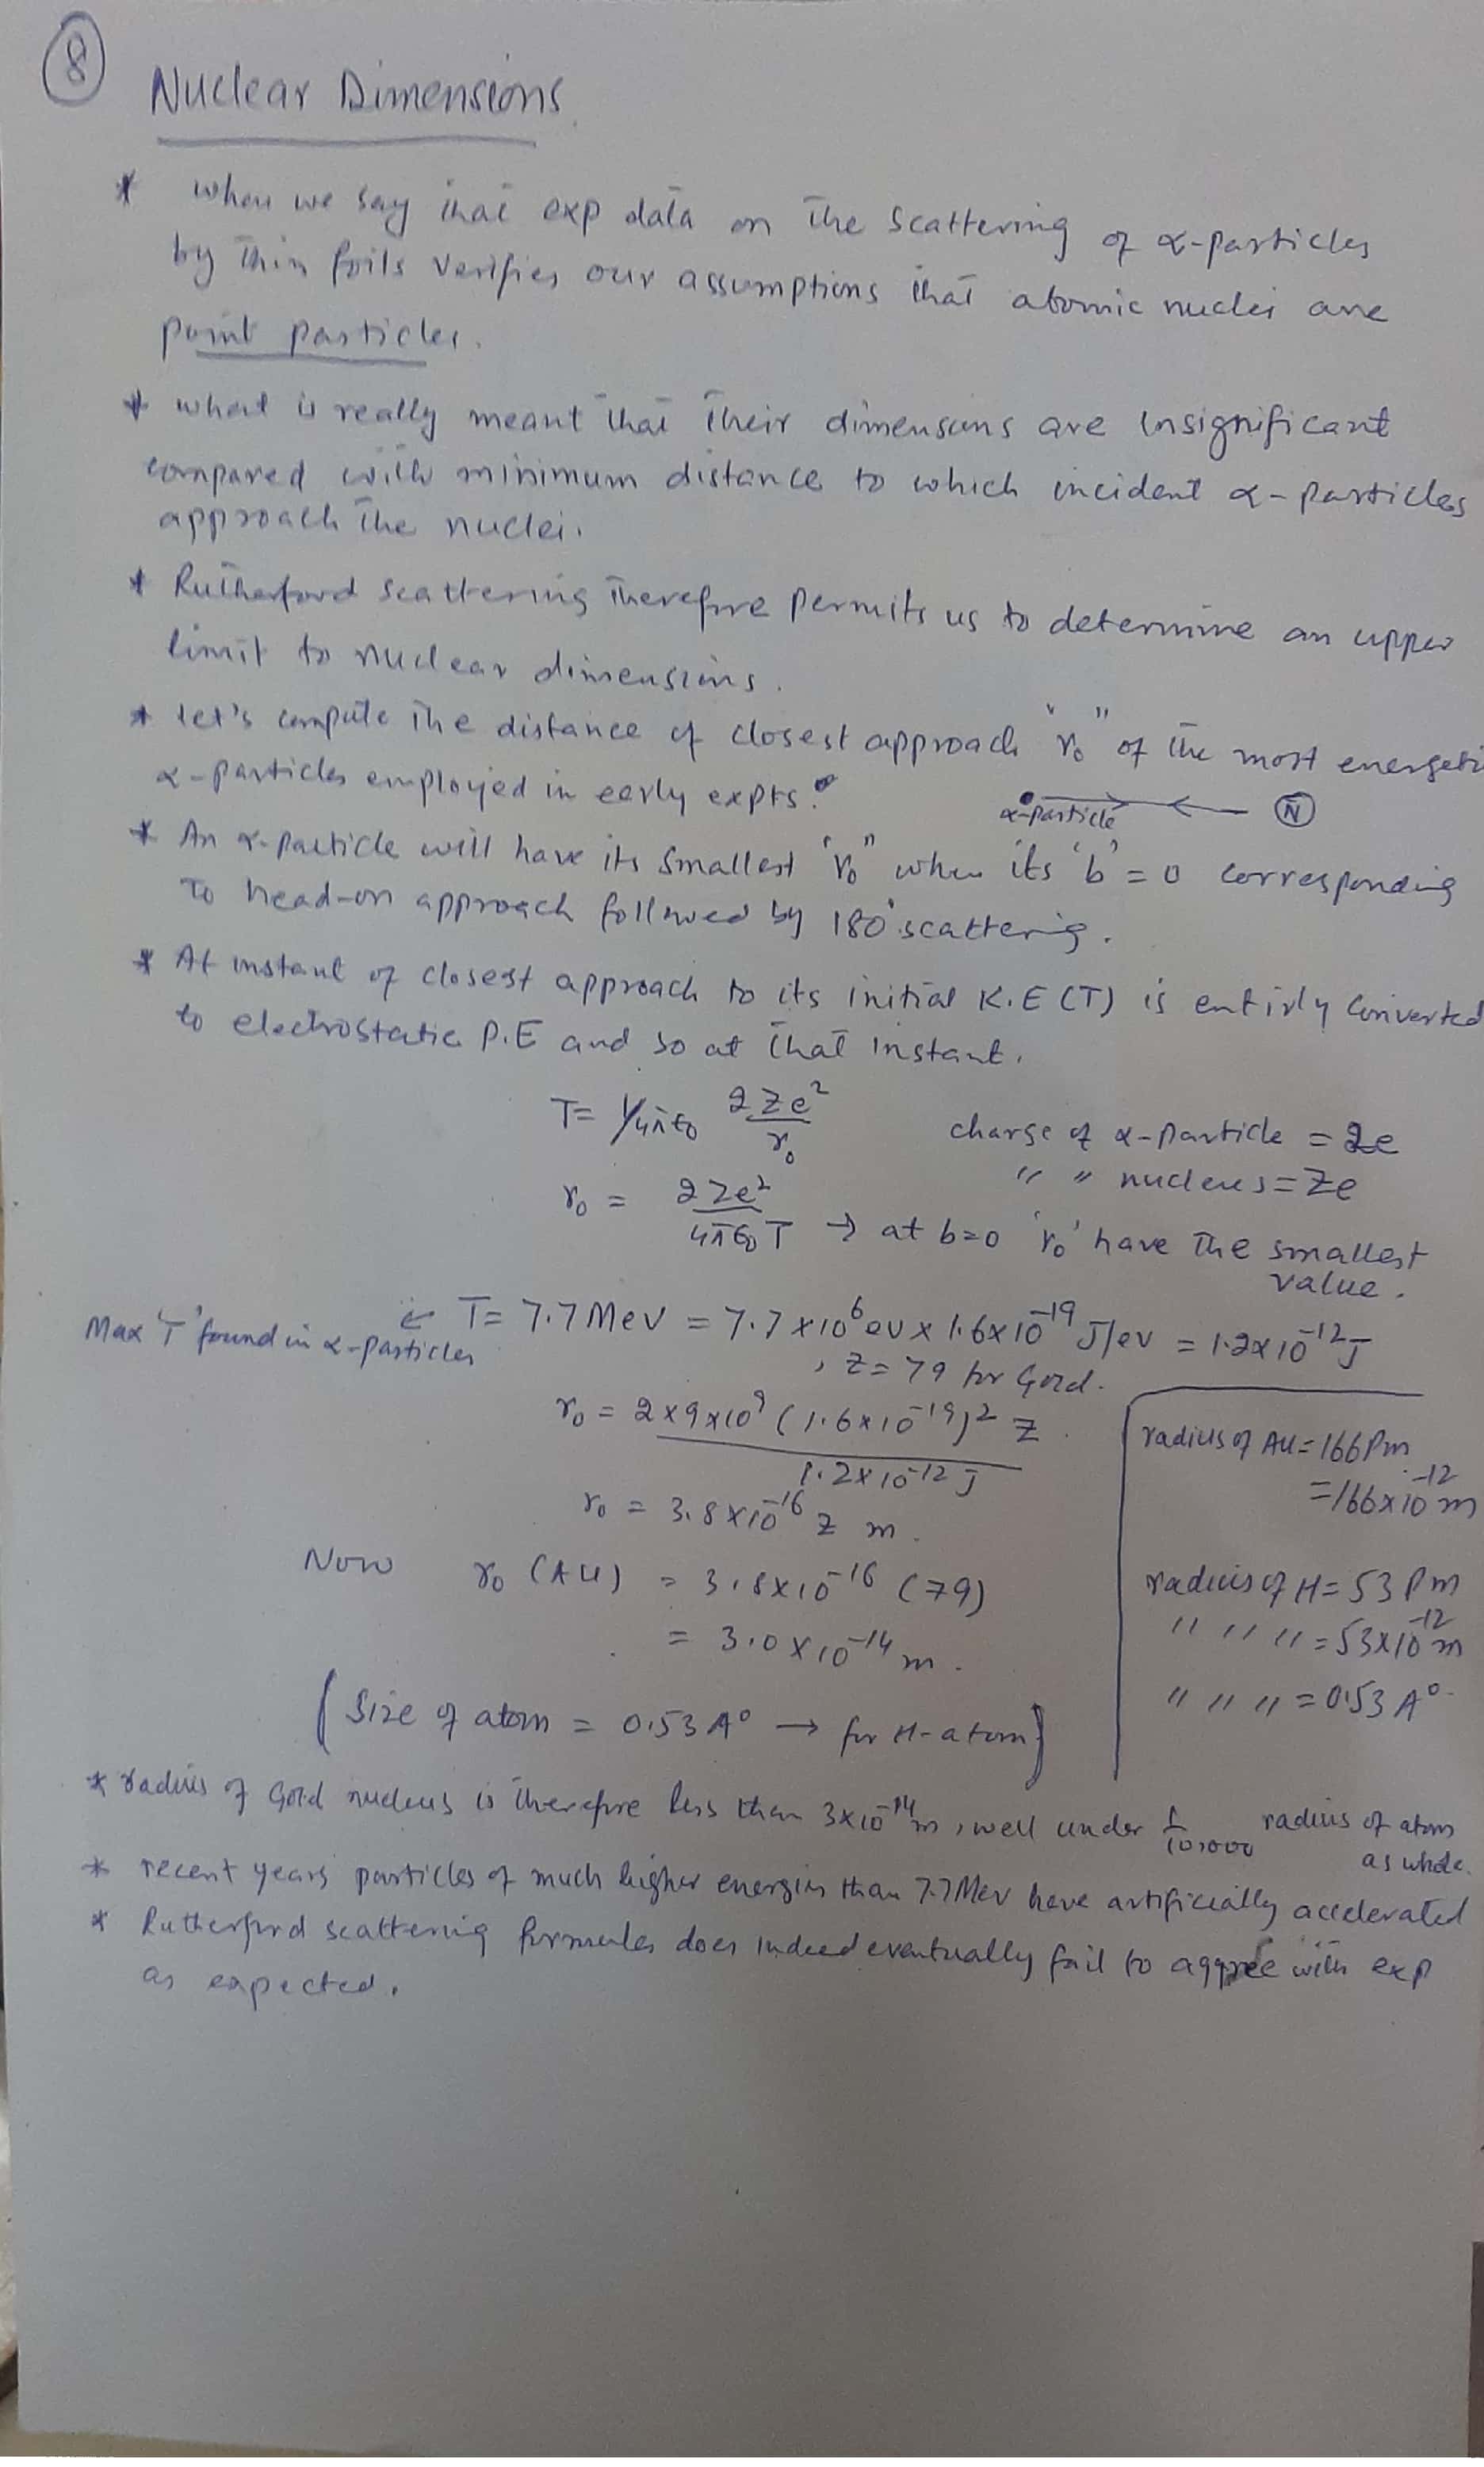 8
Nuclear Dimensions
* when we say that exp data on the scattering of α-particles
by thin foils verifies our assumptions that atomic nuclei are
point particles.
* what is really meant that their dimensions are insignificant
compared with minimum distance to which incident α-particles
approach the nuclei.
* Rutherford scattering therefore permits us to determine an upper
limit to nuclear dimensions.
* let's compute the distance of closest approach "r₀" of the most energeti
α-particles employed in early expts.
α-particle N
* An α-particle will have its smallest "r₀" when its 'b' = 0 corresponding
To head-on approach followed by 180° scattering.
* At instant of closest approach to its initial K.E (T) is entirly converted
to electrostatic P.E and so at that instant.
T = 1/4πε₀ 2Ze²/r₀
charge of α-particle = 2e
" " nucleus = Ze
r₀ = 2Ze²/4πε₀T → at b=0 'r₀' have the smallest
value.
Max 'T' found in α-particles ← T = 7.7 Mev = 7.7 x 10⁶ ev x 1.6 x 10⁻¹⁹ J/ev = 1.2 x 10⁻¹² J
, Z = 79 for Gold.
r₀ = 2x9x10⁹ (1.6x10⁻¹⁹)² Z / 1.2x10⁻¹² J
r₀ = 3.8x10⁻¹⁶ Z m.
Now r₀ (AU) = 3.8x10⁻¹⁶ (79)
= 3.0 x 10⁻¹⁴ m.
radius of AU = 166 Pm
= 166x10⁻¹² m
radius of H = 53 Pm
" " " = 53x10⁻¹² m
" " " = 0.53 A°
(Size of atom = 0.53 A° → for H-atom)
* radius of Gold nucleus is therefore less than 3x10⁻¹⁴ m, well under 1/10,000 radius of atom
as whole.
* recent years particles of much higher energies than 7.7 Mev have artificially accelerated
* Rutherford scattering formulas does indeed eventually fail to aggree with exp
as expected.